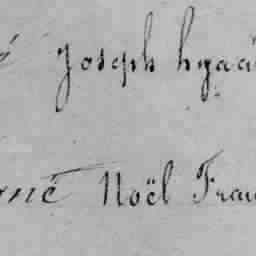 Joseph hyaci
Noël Fran